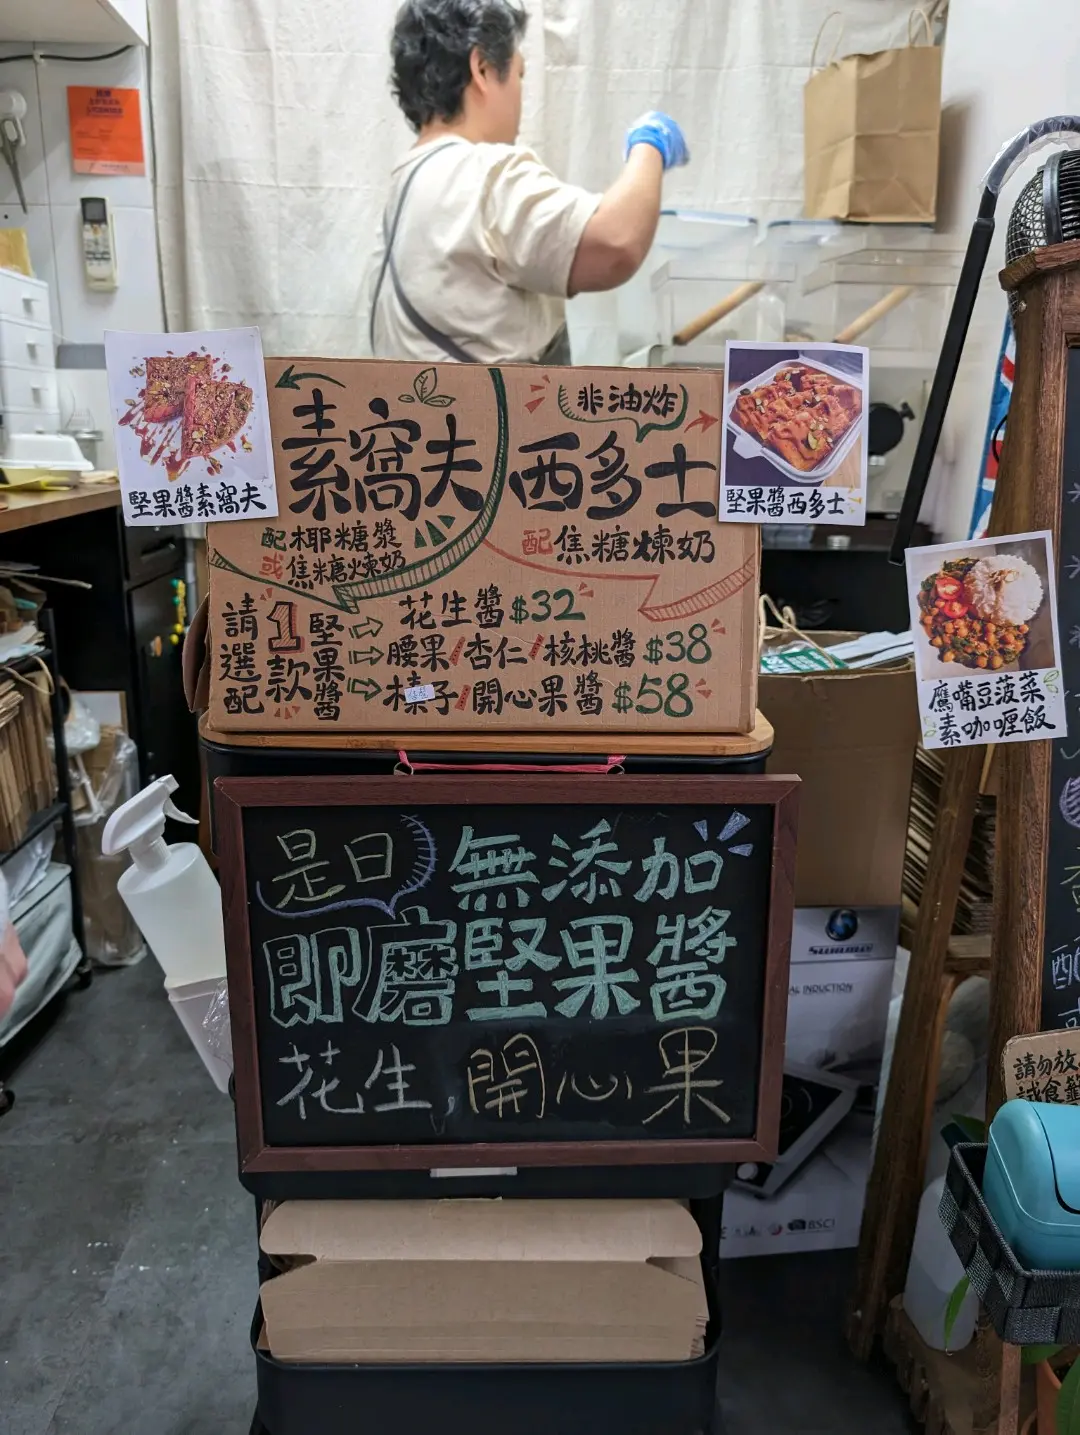 素窩夫
配椰糖漿
或焦糖煉奶
非油炸
西多士
配焦糖煉奶
請選配
1款
堅果醬
花生醬$32
腰果/杏仁/核桃醬$38
榛子/開心果醬$58
堅果醬素窩夫
堅果醬西多士
鷹嘴豆菠菜
素咖喱飯
是日
無添加
即磨堅果醬
花生,開心果
INDUCTION
BSCI
請勿放
試食